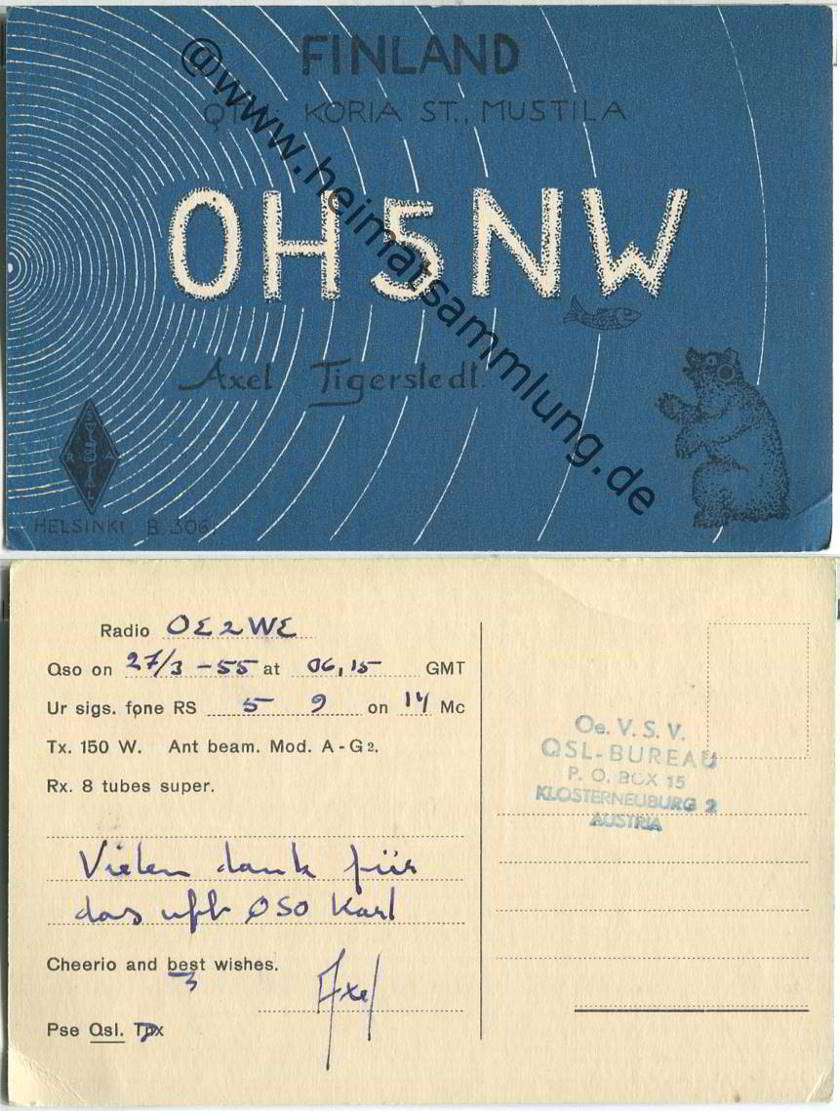 FINLAND
QTH: KORIA ST., MUSTILA
OH5NW
Axel Tigerstedt.
HELSINKI B. 306.
@www.heimatsammlung.de
Radio OE2WE
Qso on 27/3 - 55 at 06,15 GMT
Ur sigs. fone RS 5 9 on 14 Mc
Tx. 150 W. Ant beam. Mod. A-G2.
Rx. 8 tubes super.
Vielen dank für
das ufb QSO Karl
Cheerio and best wishes.
Axel
Pse Qsl. Tnx
Oe. V. S. V.
QSL-BUREAU
P. O. BOX 15
KLOSTERNEUBURG 2
AUSTRIA